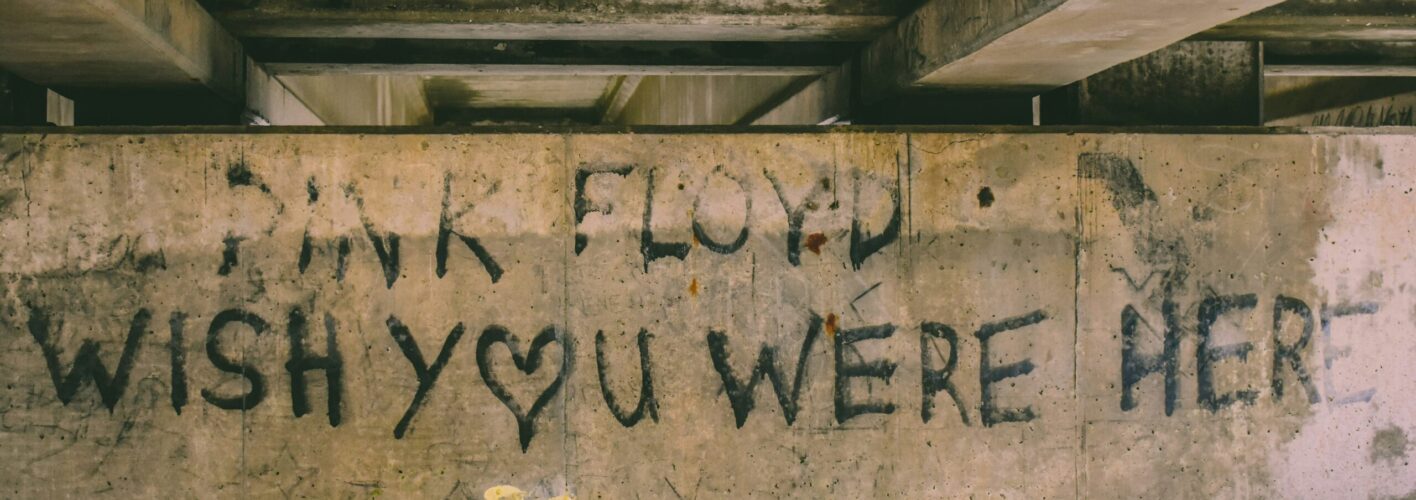 PINK FLOYD
WISH Y♥U WERE HERE